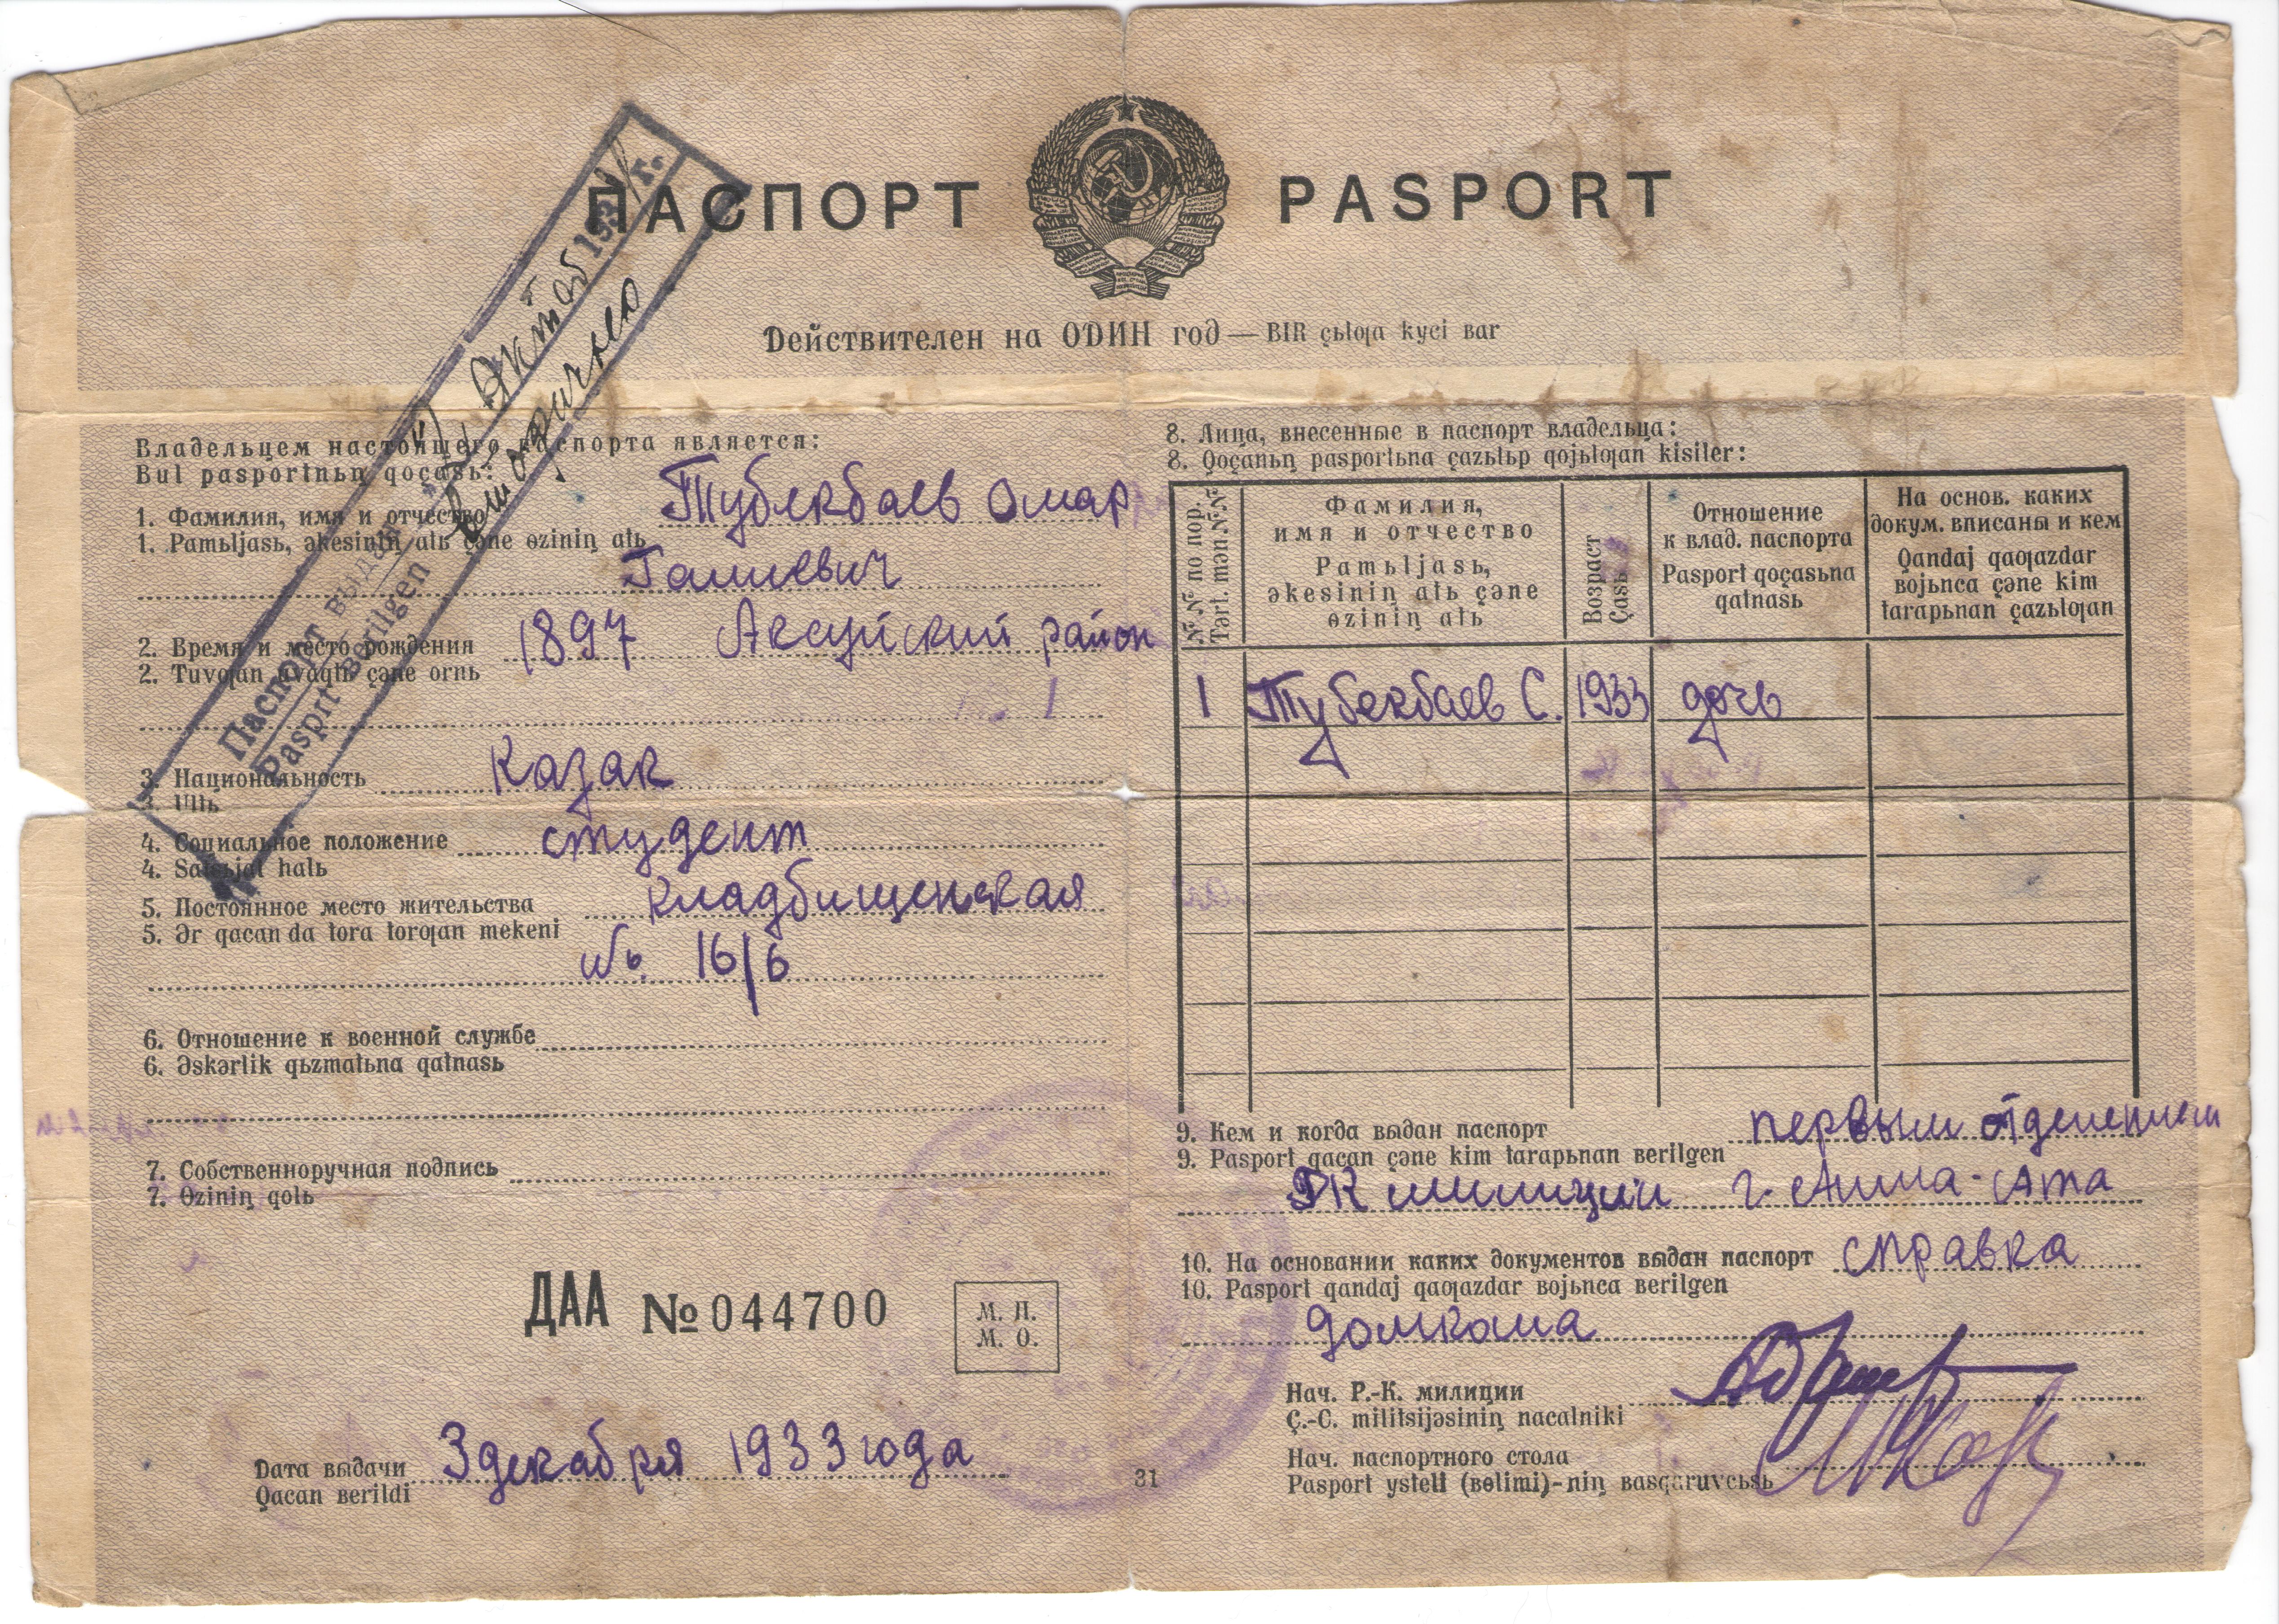 ПАСПОРТ PASPORT
Действителен на ОДИН год — BIR çьlƣa kyci bar
Паспорт выдан
Pasprt berilgen
193 /г.
Владельцем настоящего паспорта является:
Bul pasportnьꞑ qoçasь:
1. Фамилия, имя и отчество Тубекбаев Омар
1. Pamьljasь, əkesiniꞑ atь çəne ɵziniꞑ atь
2. Время и место рождения 1897 Аксуйский район
2. Tuvƣan uvaqtь çəne ornь
3. Национальность Казак
3. Ultь
4. Социальное положение студент
4. Satsьjal halь
5. Постоянное место жительства Кладбищенская
5. Ər qacan da tora torƣan mekeni
№ 16/6
6. Отношение к военной службе
6. Əskərlik qьzmatьna qatnasь
7. Собственноручная подпись
7. Ɵziniꞑ qolь
ДАА № 044700
М. П.
М. О.
Дата выдачи 3 декабря 1933 года
Qacan ʙerildi
31
8. Лица, внесенные в паспорт владельца:
8. Qoçanьꞑ pasportьna çazьlьp qojьlƣan kisiler:
№№ по пор.
Tərt. mən. №№
Фамилия,
имя и отчество
Pamьljasь,
əkesiniꞑ atь çəne
ɵziniꞑ atь
Возраст
Çasь
Отношение
к влад. паспорта
Pasport qoçasьna
qatnasь
На основ. каких
докум. вписаны и кем
Qandaj qaƣazdar
ʙojьnca çəne kim
tarapьnan çazьlƣan
1 Тубекбаев С. 1933 дочь
9. Кем и когда выдан паспорт первым отделением
9. Pasport qacan çəne kim tarapьnan ʙerilgen
ГК милиции г. Алма-Ата
10. На основании каких документов выдан паспорт справка
10. Pasport qandaj qaƣazdar ʙojьnca ʙerilgen
домкома
Нач. Р.-К. милиции
Ç.-C. militsijəsiniꞑ nacalniki
Нач. паспортного стола
Pasport ysteli (ʙɵlimi)-niꞑ ʙasqaruvcьsь